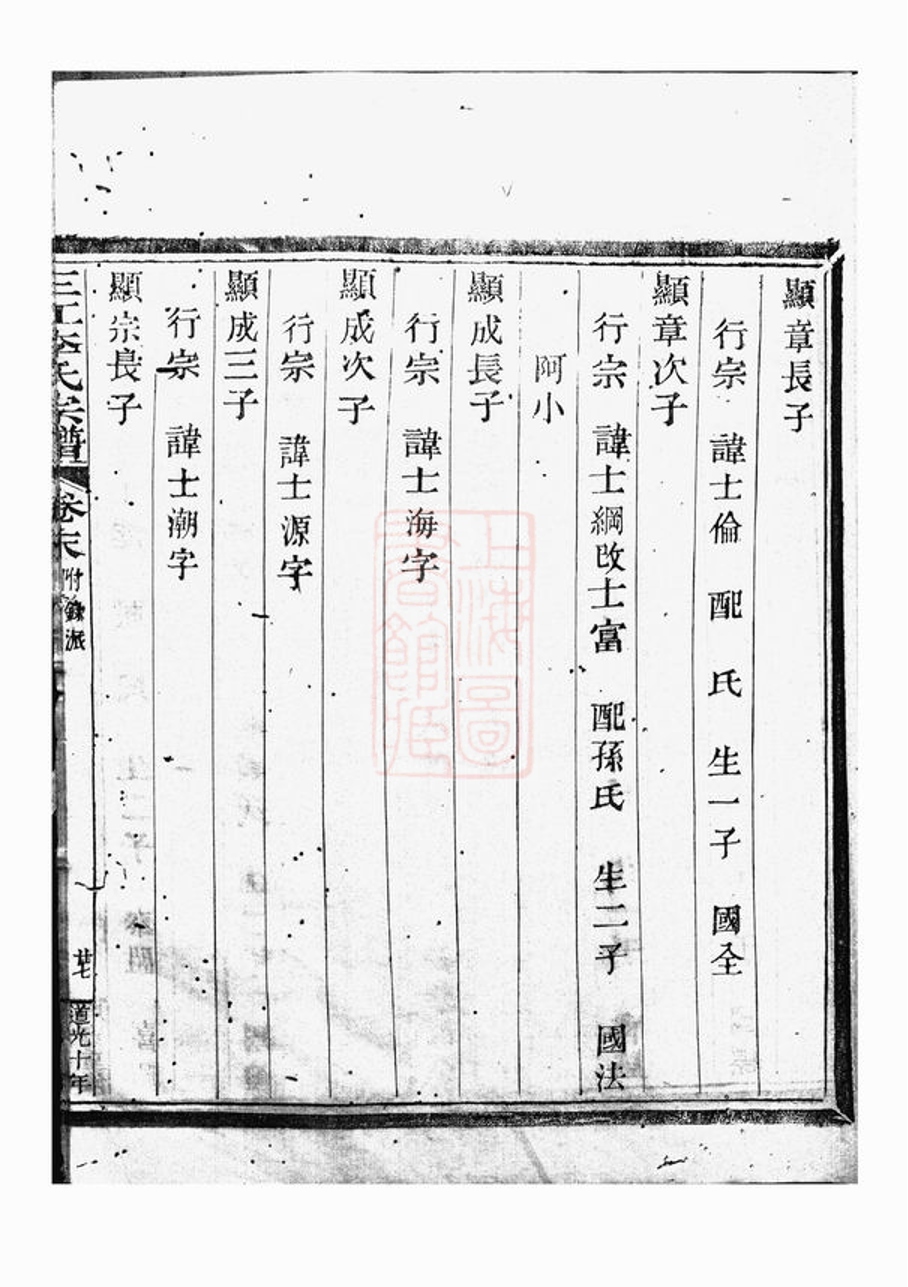 顯章長子
行宗　諱士倫　配　氏　生一子　國全
顯章次子
行宗　諱士綱改士富　配孫氏　生二子　國法
阿小
顯成長子
行宗　諱士海字
顯成次子
行宗　諱士源字
顯成三子
行宗　諱士潮字
顯宗長子
三江李氏宗譜　卷末　附錄派　廿七　道光十年
上海圖書館藏